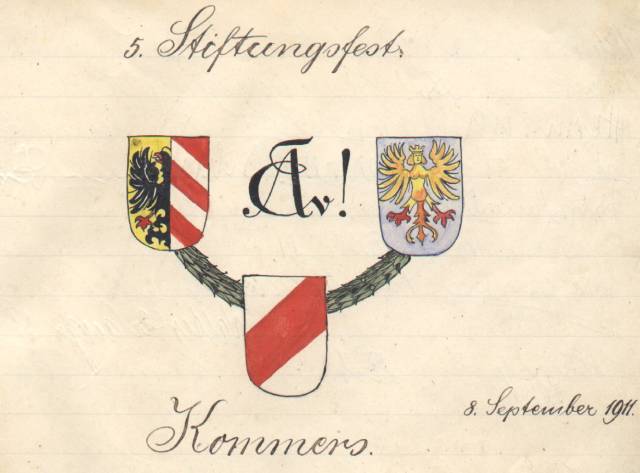 5. Stiftungsfest.
Kommers.
8. September 1911.